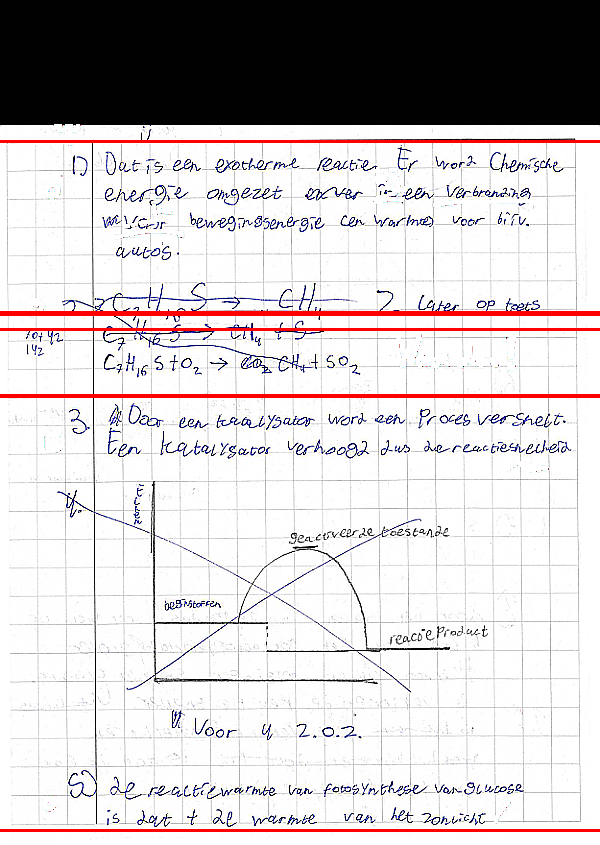 1) Dat is een exotherme reactie. Er word Chemische
energie omgezet in een Verbranding
bewegingsenergie (en warmte) voor bijv.
autos.
C7H16S → CH4
2. Later op toets
C7H16S → CH4 + S
C7H16S + O2 → CO2 CH4 + SO2
3. Door een kaalysator word een Proces vershelt.
Een Katalysator verhoogd dus de reactiesnelheid
4.
geactiveerde toestande
beginstoffen
reactie Product
Voor 4 2.0.2.
5) de reactiewarmte van fotosynthese van glucose
is dat + de warmte van het zonlicht